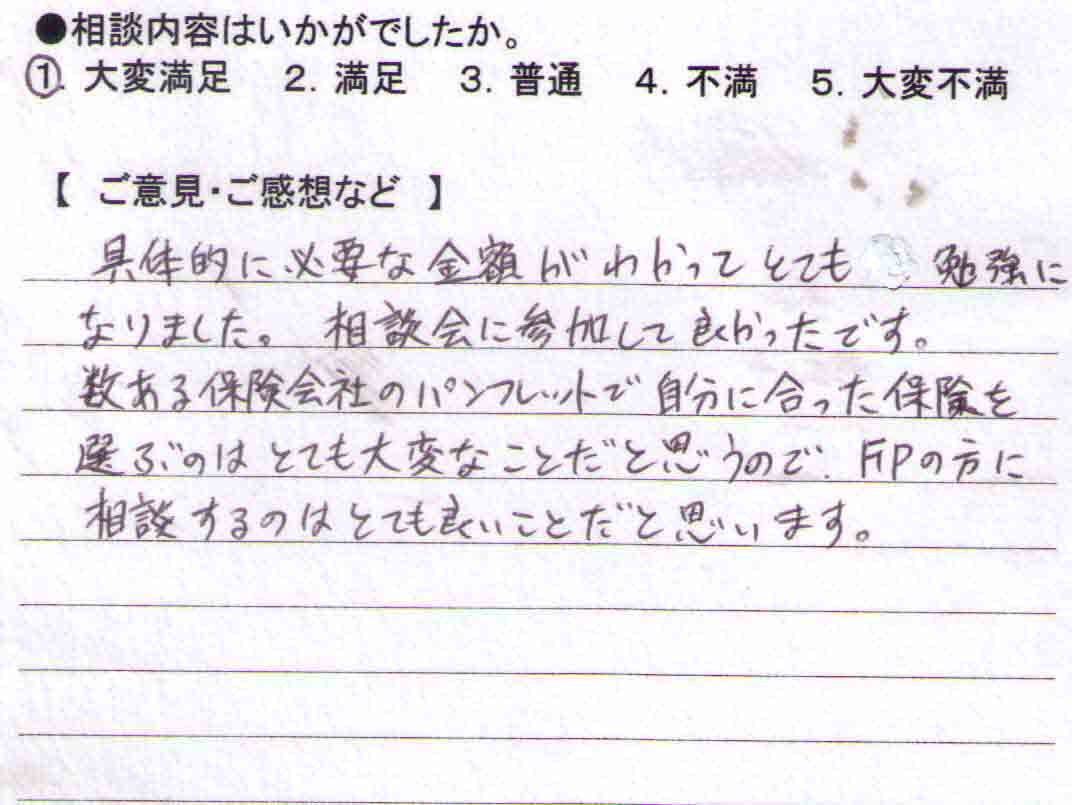 ●相談内容はいかがでしたか。
①. 大変満足　2. 満足　3. 普通　4. 不満　5. 大変不満
【 ご意見・ご感想など 】
具体的に必要な金額がわかってとても 勉強に
なりました。 相談会に参加して良かったです。
数ある保険会社のパンフレットで自分に合った保険を
選ぶのはとても大変なことだと思うので、FPの方に
相談するのはとても良いことだと思います。